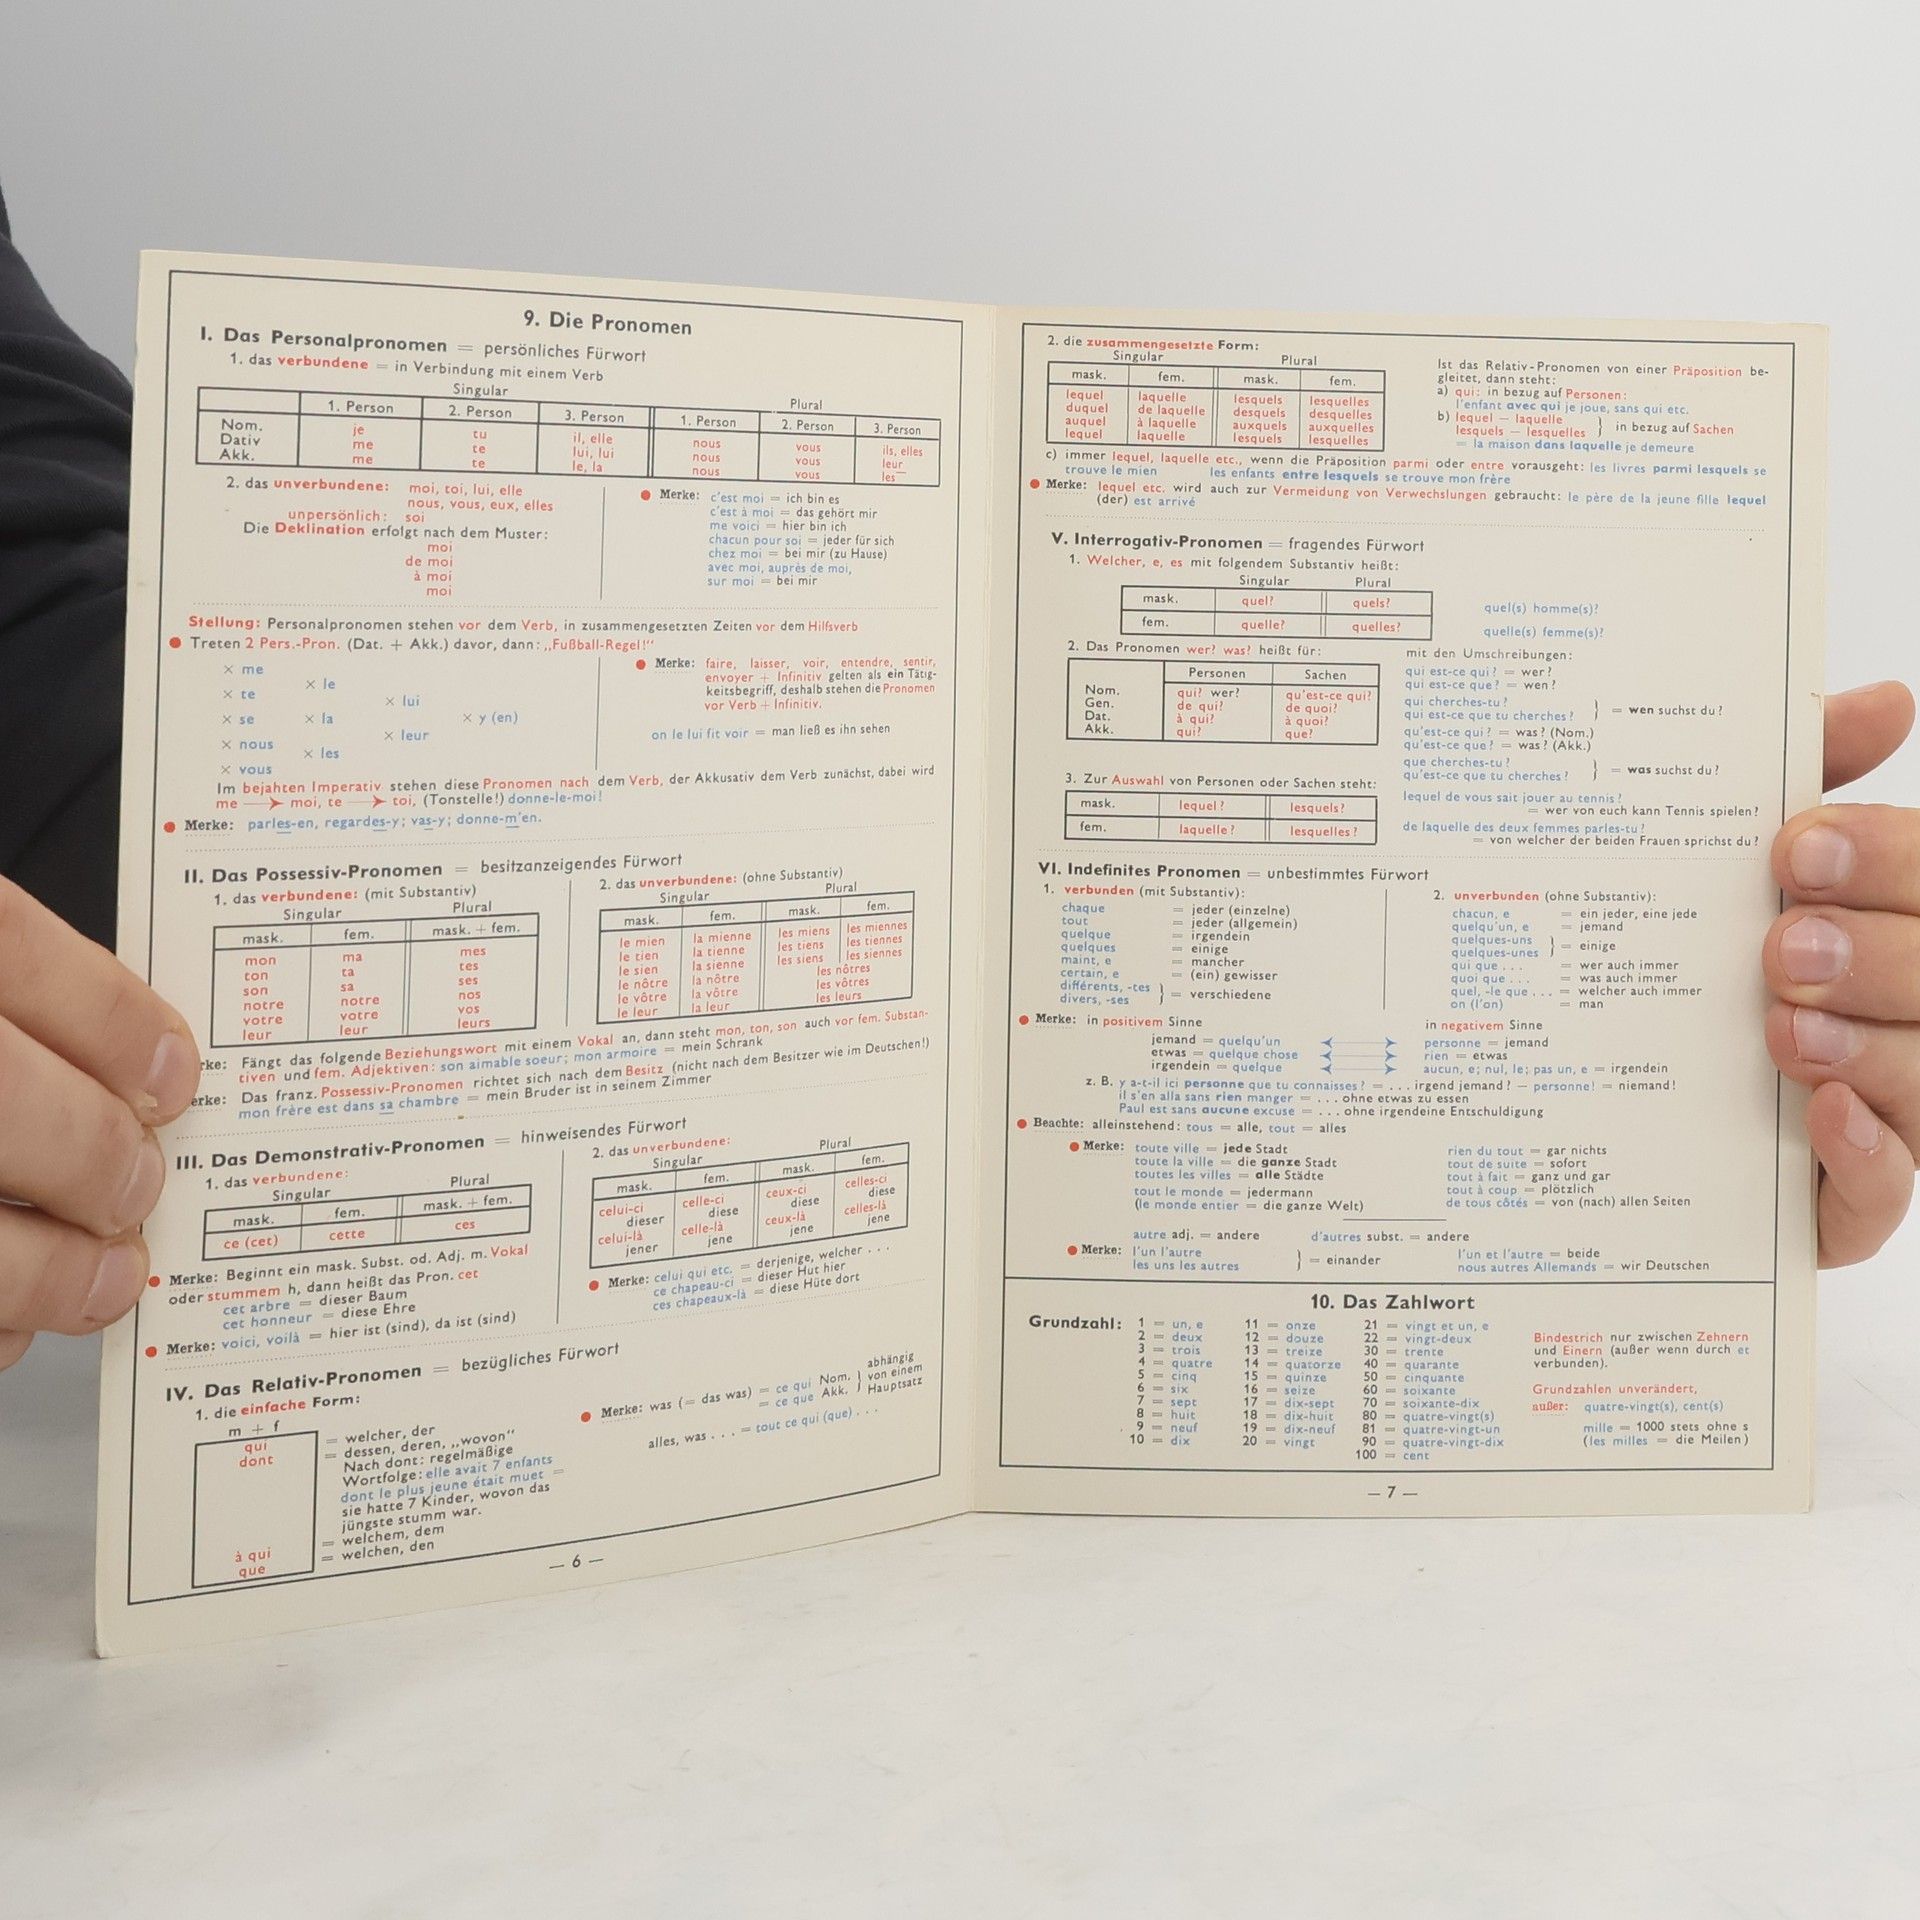 9. Die Pronomen
I. Das Personalpronomen = persönliches Fürwort
1. das verbundene = in Verbindung mit einem Verb
Singular Plural
1. Person 2. Person 3. Person 1. Person 2. Person 3. Person
Nom. je tu il, elle nous vous ils, elles
Dativ me te lui, lui nous vous leur
Akk. me te le, la nous vous les
2. das unverbundene: moi, toi, lui, elle
nous, vous, eux, elles
unpersönlich: soi
Die Deklination erfolgt nach dem Muster:
moi
de moi
à moi
moi
Merke: c'est moi = ich bin es
c'est à moi = das gehört mir
me voici = hier bin ich
chacun pour soi = jeder für sich
chez moi = bei mir (zu Hause)
avec moi, auprès de moi,
sur moi = bei mir
Stellung: Personalpronomen stehen vor dem Verb, in zusammengesetzten Zeiten vor dem Hilfsverb
Treten 2 Pers.-Pron. (Dat. + Akk.) davor, dann: „Fußball-Regel!“
× me
× le
× te
× lui
× se × la × y (en)
× leur
× nous
× les
× vous
Merke: faire, laisser, voir, entendre, sentir,
envoyer + Infinitiv gelten als ein Tätig-
keitsbegriff, deshalb stehen die Pronomen
vor Verb + Infinitiv.
on le lui fit voir = man ließ es ihn sehen
Im bejahten Imperativ stehen diese Pronomen nach dem Verb, der Akkusativ dem Verb zunächst, dabei wird
me → moi, te → toi, (Tonstelle!) donne-le-moi!
Merke: parles-en, regardes-y; vas-y; donne-m'en.
II. Das Possessiv-Pronomen = besitzanzeigendes Fürwort
1. das verbundene: (mit Substantiv)
Singular Plural
mask. fem. mask. + fem.
mon ma mes
ton ta tes
son sa ses
notre notre nos
votre votre vos
leur leur leurs
2. das unverbundene: (ohne Substantiv)
Singular Plural
mask. fem. mask. fem.
le mien la mienne les miens les miennes
le tien la tienne les tiens les tiennes
le sien la sienne les siens les siennes
le nôtre la nôtre les nôtres
le vôtre la vôtre les vôtres
le leur la leur les leurs
rke: Fängt das folgende Beziehungswort mit einem Vokal an, dann steht mon, ton, son auch vor fem. Substan-
tiven und fem. Adjektiven: son aimable soeur; mon armoire = mein Schrank
erke: Das franz. Possessiv-Pronomen richtet sich nach dem Besitz (nicht nach dem Besitzer wie im Deutschen!)
mon frère est dans sa chambre = mein Bruder ist in seinem Zimmer
III. Das Demonstrativ-Pronomen = hinweisendes Fürwort
1. das verbundene:
Singular Plural
mask. fem. mask. + fem.
ce (cet) cette ces
Merke: Beginnt ein mask. Subst. od. Adj. m. Vokal
oder stummem h, dann heißt das Pron. cet
cet arbre = dieser Baum
cet honneur = diese Ehre
Merke: voici, voilà = hier ist (sind), da ist (sind)
2. das unverbundene:
Singular Plural
mask. fem. mask. fem.
celui-ci celle-ci ceux-ci celles-ci
dieser diese diese diese
celui-là celle-là ceux-là celles-là
jener jene jene jene
Merke: celui qui etc. = derjenige, welcher . . .
ce chapeau-ci = dieser Hut hier
ces chapeaux-là = diese Hüte dort
IV. Das Relativ-Pronomen = bezügliches Fürwort
1. die einfache Form:
m + f
qui = welcher, der
dont = dessen, deren, „wovon“
Nach dont: regelmäßige
Wortfolge: elle avait 7 enfants
dont le plus jeune était muet =
sie hatte 7 Kinder, wovon das
jüngste stumm war.
à qui = welchem, dem
que = welchen, den
Merke: was (= das was) = ce qui Nom. } abhängig
= ce que Akk. } von einem
Hauptsatz
alles, was . . . = tout ce qui (que) . . .
— 6 —
2. die zusammengesetzte Form:
Singular Plural
mask. fem. mask. fem.
lequel laquelle lesquels lesquelles
duquel de laquelle desquels desquelles
auquel à laquelle auxquels auxquelles
lequel laquelle lesquels lesquelles
Ist das Relativ-Pronomen von einer Präposition be-
gleitet, dann steht:
a) qui: in bezug auf Personen:
l'enfant avec qui je joue, sans qui etc.
b) lequel — laquelle
lesquels — lesquelles } in bezug auf Sachen
= la maison dans laquelle je demeure
c) immer lequel, laquelle etc., wenn die Präposition parmi oder entre vorausgeht: les livres parmi lesquels se
trouve le mien les enfants entre lesquels se trouve mon frère
Merke: lequel etc. wird auch zur Vermeidung von Verwechslungen gebraucht: le père de la jeune fille lequel
(der) est arrivé
V. Interrogativ-Pronomen = fragendes Fürwort
1. Welcher, e, es mit folgendem Substantiv heißt:
Singular Plural
mask. quel? quels? quel(s) homme(s)?
fem. quelle? quelles? quelle(s) femme(s)?
2. Das Pronomen wer? was? heißt für:
Personen Sachen
Nom. qui? wer? qu'est-ce qui?
Gen. de qui? de quoi?
Dat. à qui? à quoi?
Akk. qui? que?
mit den Umschreibungen:
qui est-ce qui? = wer?
qui est-ce que? = wen?
qui cherches-tu?
qui est-ce que tu cherches? } = wen suchst du?
qu'est-ce qui? = was? (Nom.)
qu'est-ce que? = was? (Akk.)
que cherches-tu?
qu'est-ce que tu cherches? } = was suchst du?
3. Zur Auswahl von Personen oder Sachen steht:
mask. lequel? lesquels?
fem. laquelle? lesquelles?
lequel de vous sait jouer au tennis?
= wer von euch kann Tennis spielen?
de laquelle des deux femmes parles-tu?
= von welcher der beiden Frauen sprichst du?
VI. Indefinites Pronomen = unbestimmtes Fürwort
1. verbunden (mit Substantiv):
chaque = jeder (einzelne)
tout = jeder (allgemein)
quelque = irgendein
quelques = einige
maint, e = mancher
certain, e = (ein) gewisser
différents, -tes
divers, -ses } = verschiedene
2. unverbunden (ohne Substantiv):
chacun, e = ein jeder, eine jede
quelqu'un, e = jemand
quelques-uns
quelques-unes } = einige
qui que . . . = wer auch immer
quoi que . . . = was auch immer
quel, -le que . . . = welcher auch immer
on (l'on) = man
Merke: in positivem Sinne in negativem Sinne
jemand = quelqu'un personne = jemand
etwas = quelque chose rien = etwas
irgendein = quelque aucun, e; nul, le; pas un, e = irgendein
z. B. y a-t-il ici personne que tu connaisses? = . . . irgend jemand? — personne! = niemand!
il s'en alla sans rien manger = . . . ohne etwas zu essen
Paul est sans aucune excuse = . . . ohne irgendeine Entschuldigung
Beachte: alleinstehend: tous = alle, tout = alles
Merke: toute ville = jede Stadt
toute la ville = die ganze Stadt
toutes les villes = alle Städte
tout le monde = jedermann
(le monde entier = die ganze Welt)
rien du tout = gar nichts
tout de suite = sofort
tout à fait = ganz und gar
tout à coup = plötzlich
de tous côtés = von (nach) allen Seiten
autre adj. = andere d'autres subst. = andere
Merke: l'un l'autre
les uns les autres } = einander
l'un et l'autre = beide
nous autres Allemands = wir Deutschen
10. Das Zahlwort
Grundzahl: 1 = un, e 11 = onze 21 = vingt et un, e
2 = deux 12 = douze 22 = vingt-deux
3 = trois 13 = treize 30 = trente
4 = quatre 14 = quatorze 40 = quarante
5 = cinq 15 = quinze 50 = cinquante
6 = six 16 = seize 60 = soixante
7 = sept 17 = dix-sept 70 = soixante-dix
8 = huit 18 = dix-huit 80 = quatre-vingt(s)
9 = neuf 19 = dix-neuf 81 = quatre-vingt-un
10 = dix 20 = vingt 90 = quatre-vingt-dix
100 = cent
Bindestrich nur zwischen Zehnern
und Einern (außer wenn durch et
verbunden).
Grundzahlen unverändert,
außer: quatre-vingt(s), cent(s)
mille = 1000 stets ohne s
(les milles = die Meilen)
— 7 —